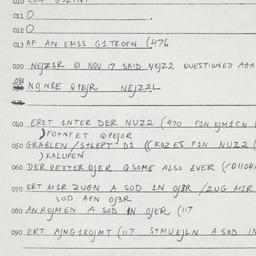 011 O
012 O
013 AF AN EMSS G1TKOFN (476
020 NEJZSR @ NOV 17 SAID NEJZ2 QUESTIONED AGA
NO, NBE QPEJR NEJZ2L
040 ERET 1NTER DER NUZ2 (470 F1N EJM1CN
)FOFNFET QPEJOR
050 GRABLEN / D1 ((KOZES F1N NUZZ
)KALUPEN
060 DER REXTER OJER GSOME ALSO EVER (/01104
070 ERT M1R ZUGN A SOD 1N OJ3R /ZUG M1R
SOD AFN OJ3R
080 ANROJMEN A SOD IN OJER (117
090 ERT AJNG1ROJMT (117 S1MUEJLN A SOD IN